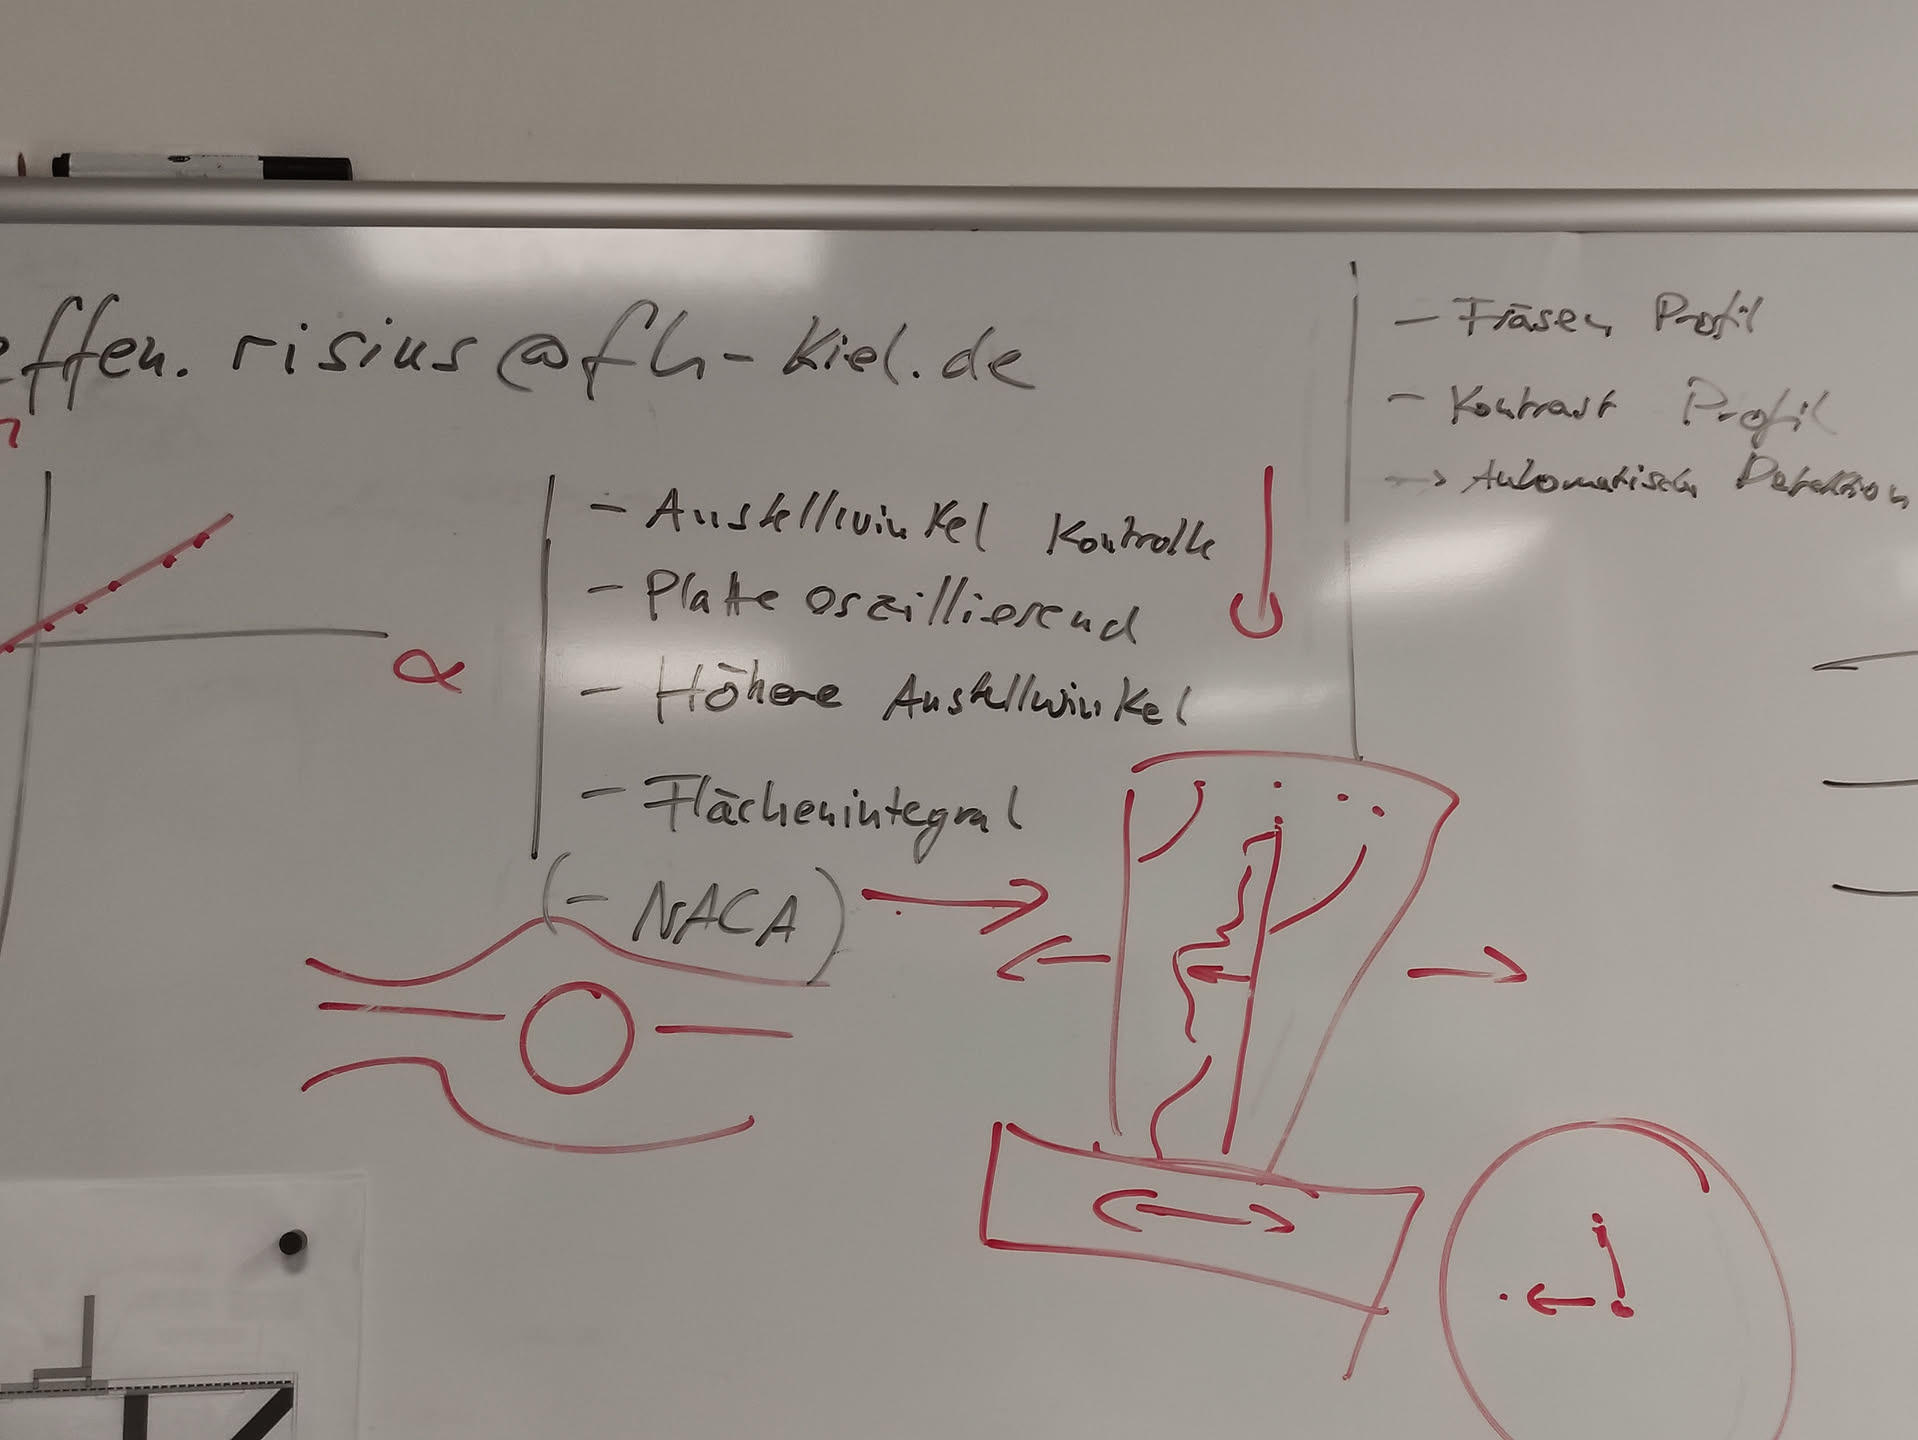 effen.risius@fh-kiel.de
- Anstellwinkel Kontrolle
- Platte oszillierend
- Höhere Anstellwinkel
- Flächenintegral
(- NACA)
α
- Fräsen Profil
- Kontrast Profil
-> Automatisch Detektion